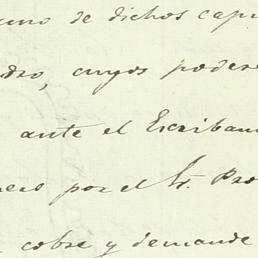 uno de dichos capi
dro, cuyos podere
ante el Escriban
por el Sr. Pro
cobre y demande